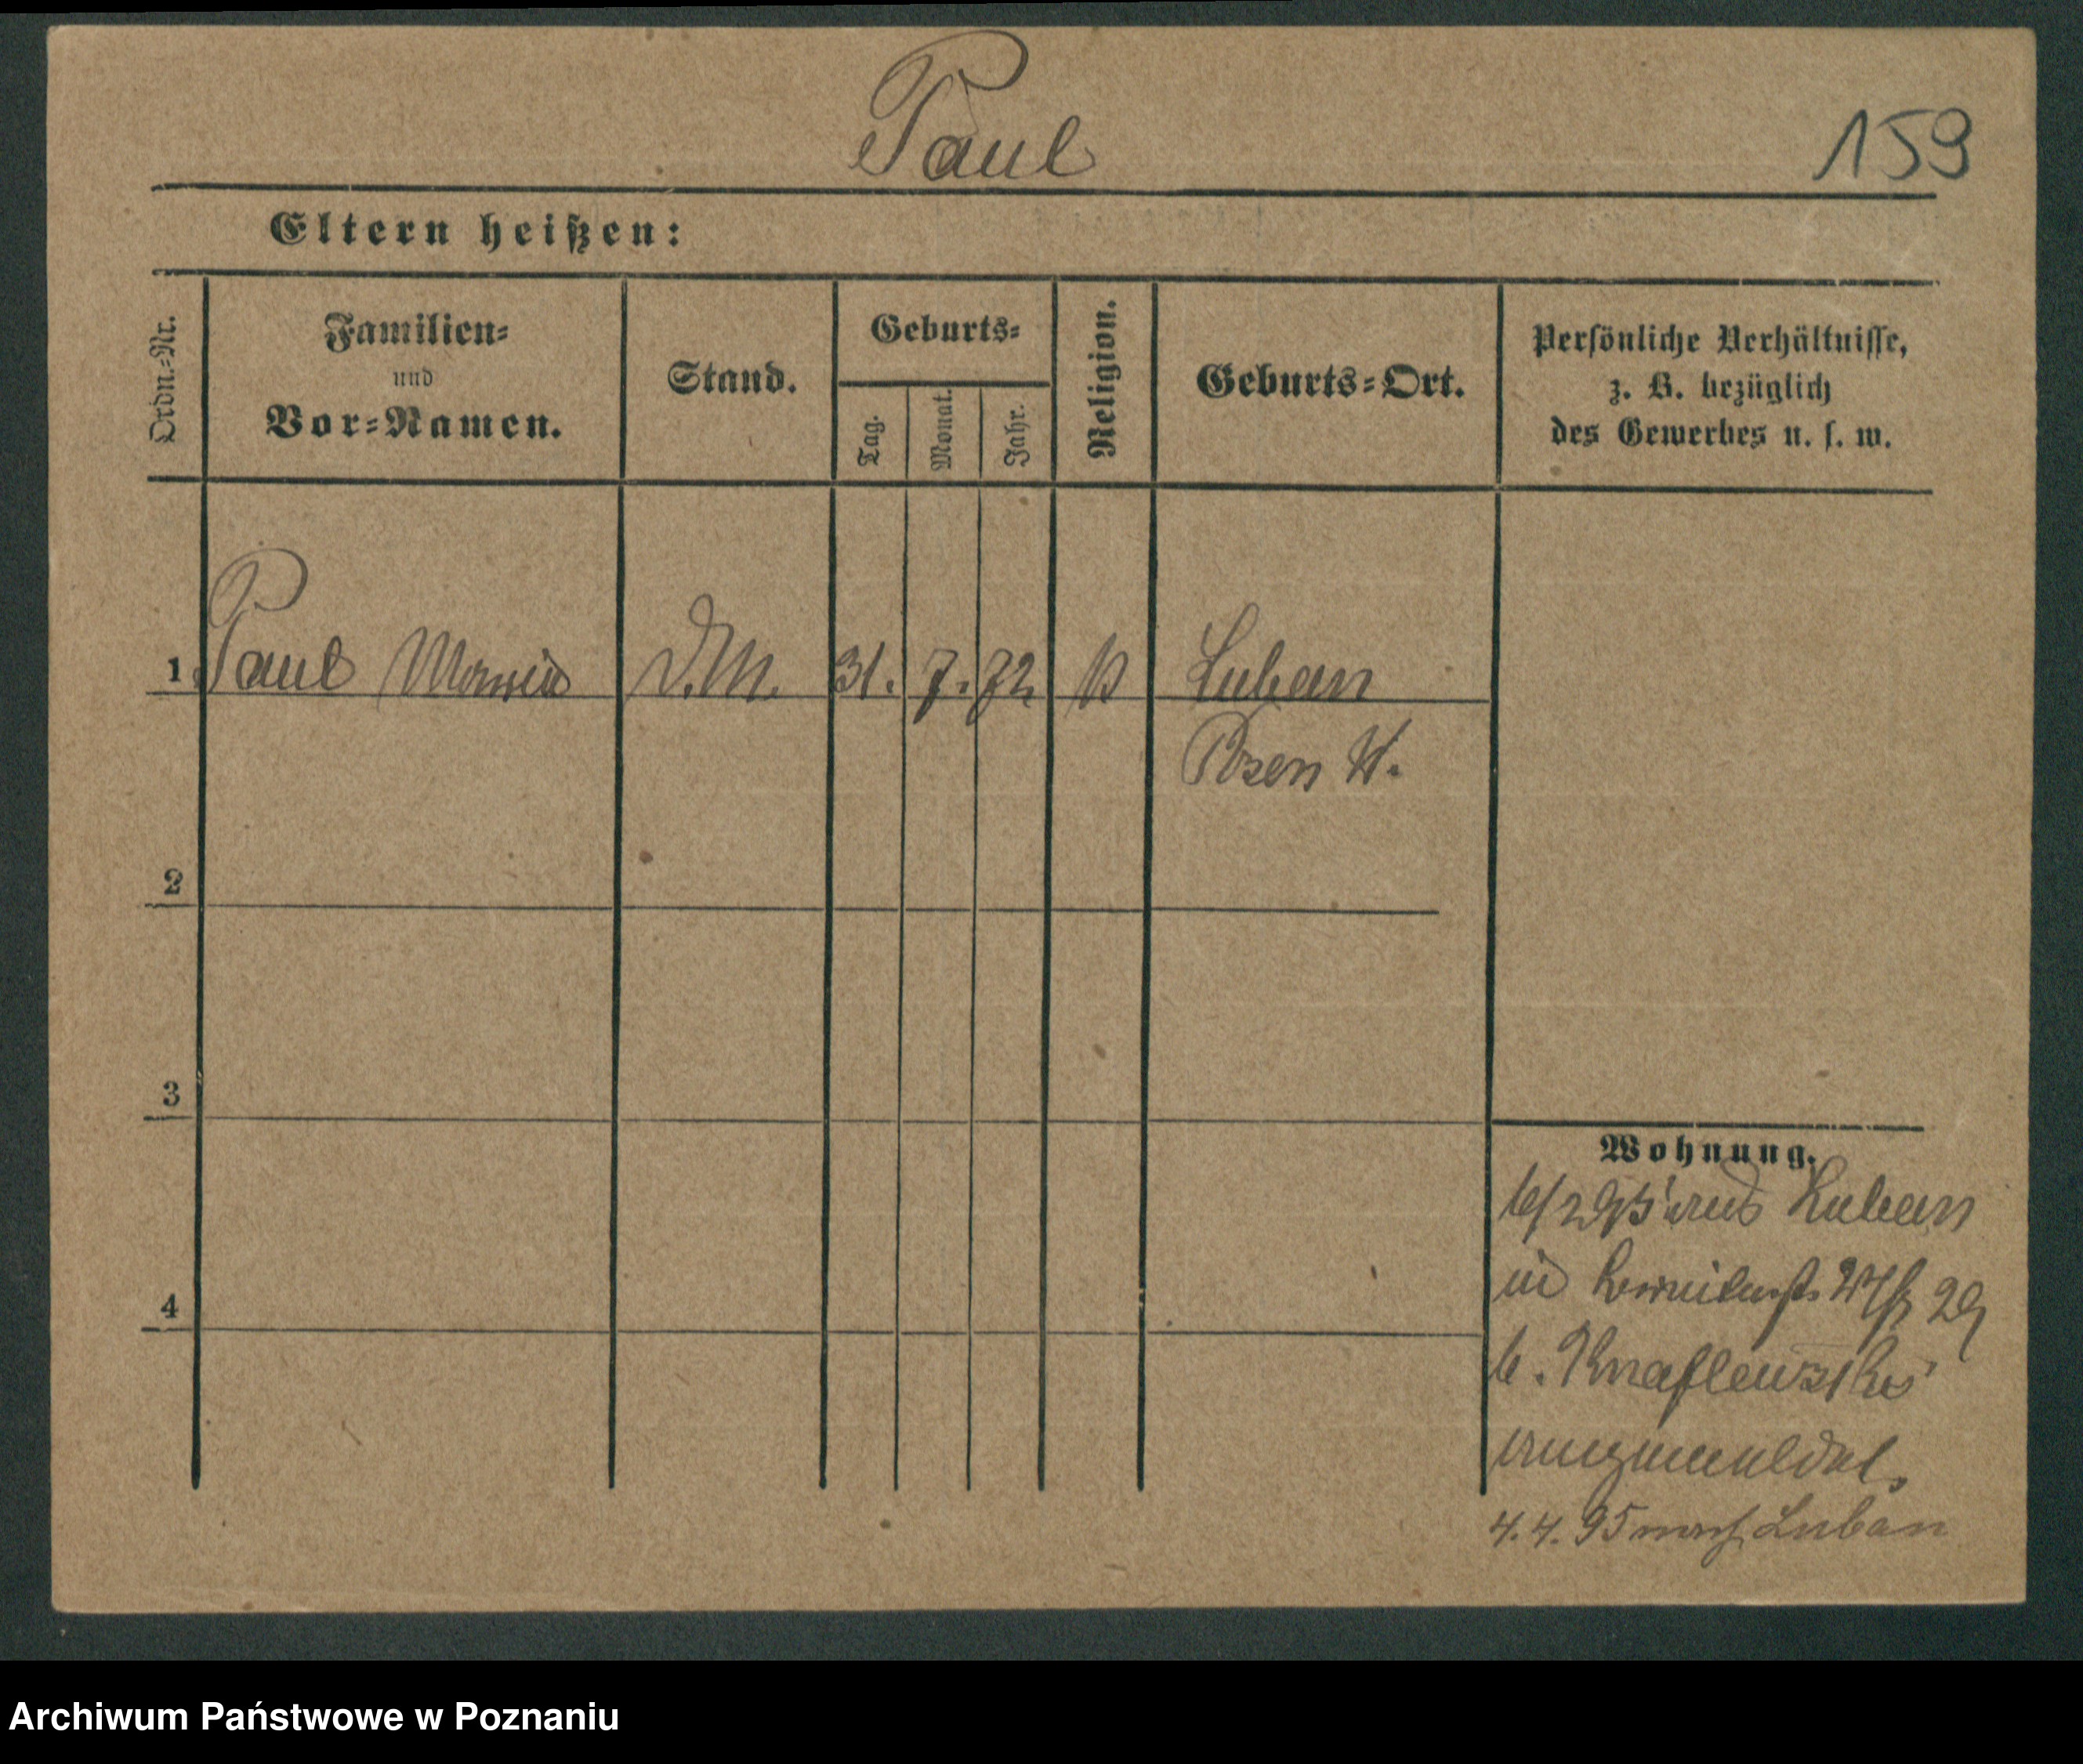 Paul
159
Eltern heißen:
Ordn.-Nr.
Familien-
und
Vor-Namen.
Stand.
Geburts-
Tag.
Monat.
Jahr.
Religion.
Geburts-Ort.
Persönliche Verhältnisse,
z. B. bezüglich
des Gewerbes u. s. w.
1 Paul Maria D.M. 31. 7. 72 k Luban
Posen W.
2
3
4
Wohnung.
Luban
in 29
b.
4.4.95 nach Luban
Archiwum Państwowe w Poznaniu